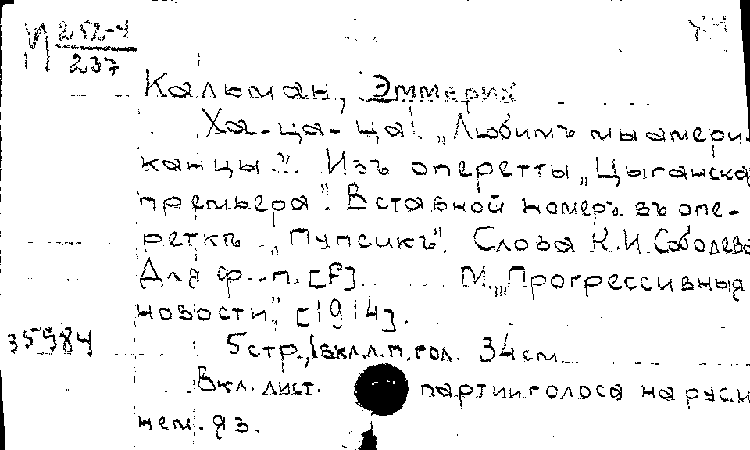 И 252-4
237
Кальман, Эммерих
Ха-ца-ца! „Любимъ мы амери-
канцы..." Изъ оперетты „Цыганска
премьера". Вставной номеръ въ опе-
реткѣ „Пупсикъ". Слова К.И. Соболева
Для ф.-п. [F]. М., „Прогрессивныя
новости", [1914].
35984
5 стр., 1 вкл.л.п.гол. 34 см
Вкл. лист. партии голоса на рус. и
нем. яз.